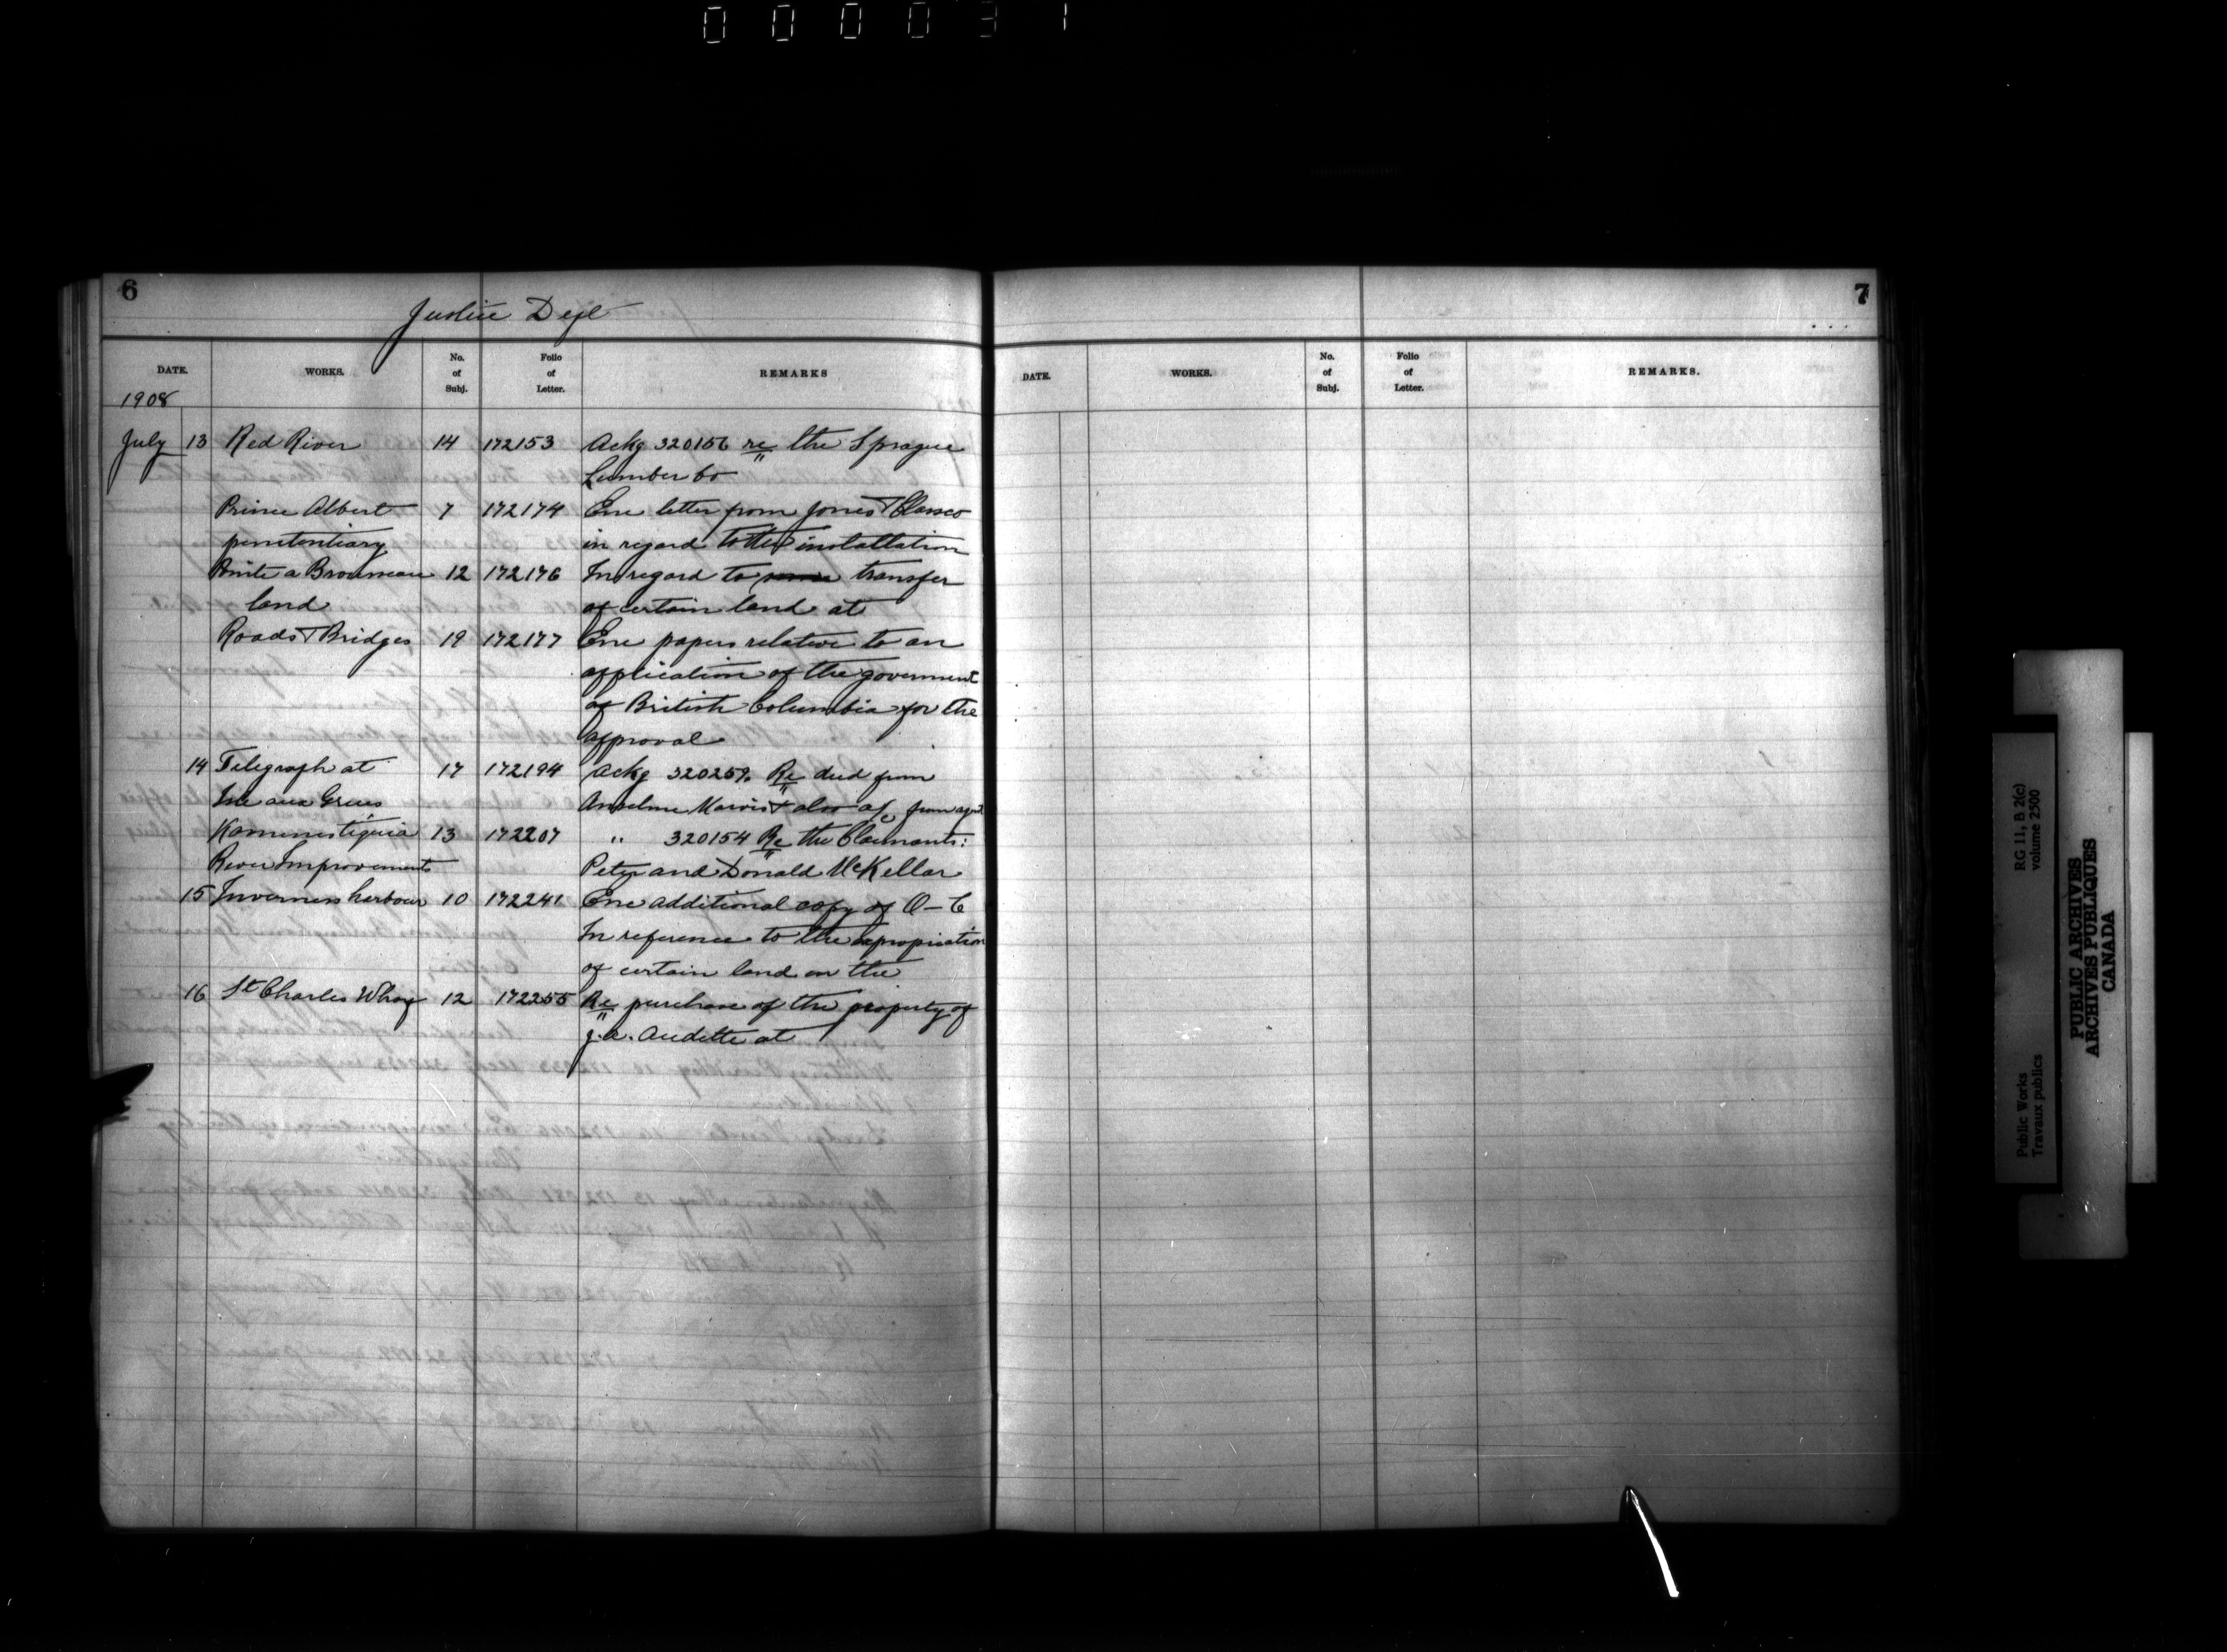 000031
6
Justice Dept
DATE. WORKS. No. of Subj. Folio of Letter. REMARKS
1908
July 13 Red River 14 172153 Ackg 320156 re the Sprague
Lumber Co
Prince Albert 7 172174 Enc letter from Jones &
penetentiary in regard to the installation
12 172176 In regard to transfer
land of certain land at
Roads & Bridges 19 172177 Enc papers relative to an
application of the goverment
of British Columbia for the
approval
14 Telegraph at 17 172194 Ackg 320259 Re deed from
Isle aux Grues Anselme & also a/c from agt
Kaministiquia 13 172207 " 320154 Re the Claimants:
River Improvements Peter and Donald McKellar
15 Inverness harbour 10 172241 Enc additional copy of O-C
In reference to the expropriation
of certain land on the
16 St Charles Wharf 12 172255 Re purchase of the property of
J.A. Audette at
7
DATE. WORKS. No. of Subj. Folio of Letter. REMARKS.
Public Works
Travaux publics
RG 11, B 2(c)
volume 2500
PUBLIC ARCHIVES
ARCHIVES PUBLIQUES
CANADA